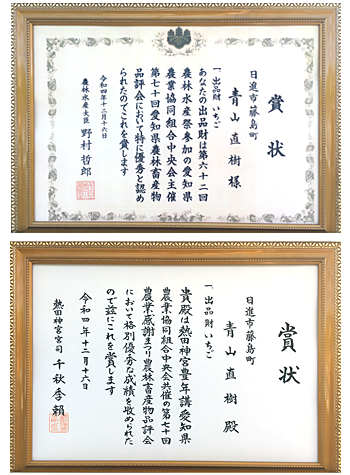 賞状
日進市藤島町
青山直樹様
一、出品財 いちご
あなたの出品財は第六十二回
農林水産祭参加の愛知県
農業協同組合中央会主催
第七十回愛知県農林畜産物
品評会において特に優秀と認め
られたのでこれを賞します
令和四年十二月十六日
農林水産大臣 野村哲郎
賞状
日進市藤島町
青山直樹殿
一、出品財 いちご
貴殿は熱田神宮豊年講愛知県
農業協同組合中央会共催の第七十回
農業感謝まつり農林畜産物品評会
において格別優秀な成績を收められた
ので茲にこれを賞します
令和四年十二月十六日
熱田神宮宮司 千秋季頼